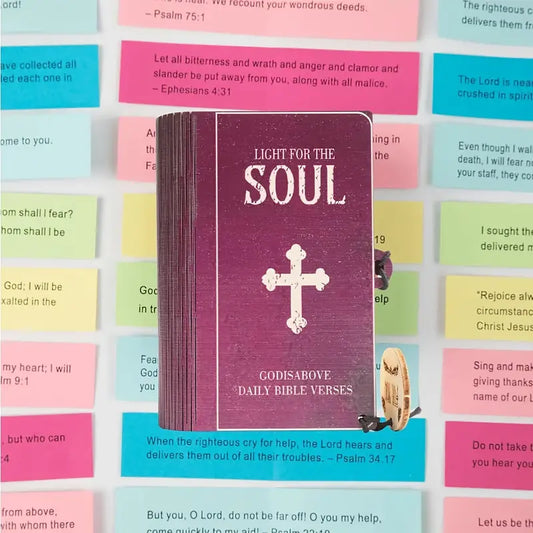 ord!
We recount your wondrous deeds.
– Psalm 75:1
The righteous c
delivers them fr
ave collected all
led each one in
Let all bitterness and wrath and anger and clamor and
slander be put away from you, along with all malice.
– Ephesians 4:31
The Lord is near
crushed in spirit
come to you.
An
this
Fa
ning in
Even though I walk
death, I will fear no
your staff, they co
LIGHT FOR THE
SOUL
hom shall I fear?
hom shall I be
19
I sought the
delivered m
God; I will be
exalted in the
God
in tr
help
"Rejoice alw
circumstanc
Christ Jesus
my heart; I will
lm 9:1
Fea
God
you
GODISABOVE
DAILY BIBLE VERSES
Sing and mak
giving thanks
name of our L
, but who can
:4
When the righteous cry for help, the Lord hears and
delivers them out of all their troubles. – Psalm 34.17
Do not take t
you hear you
from above,
with whom there
But you, O Lord, do not be far off! O you my help,
come quickly to my aid! – Psalm 22:19
Let us be th